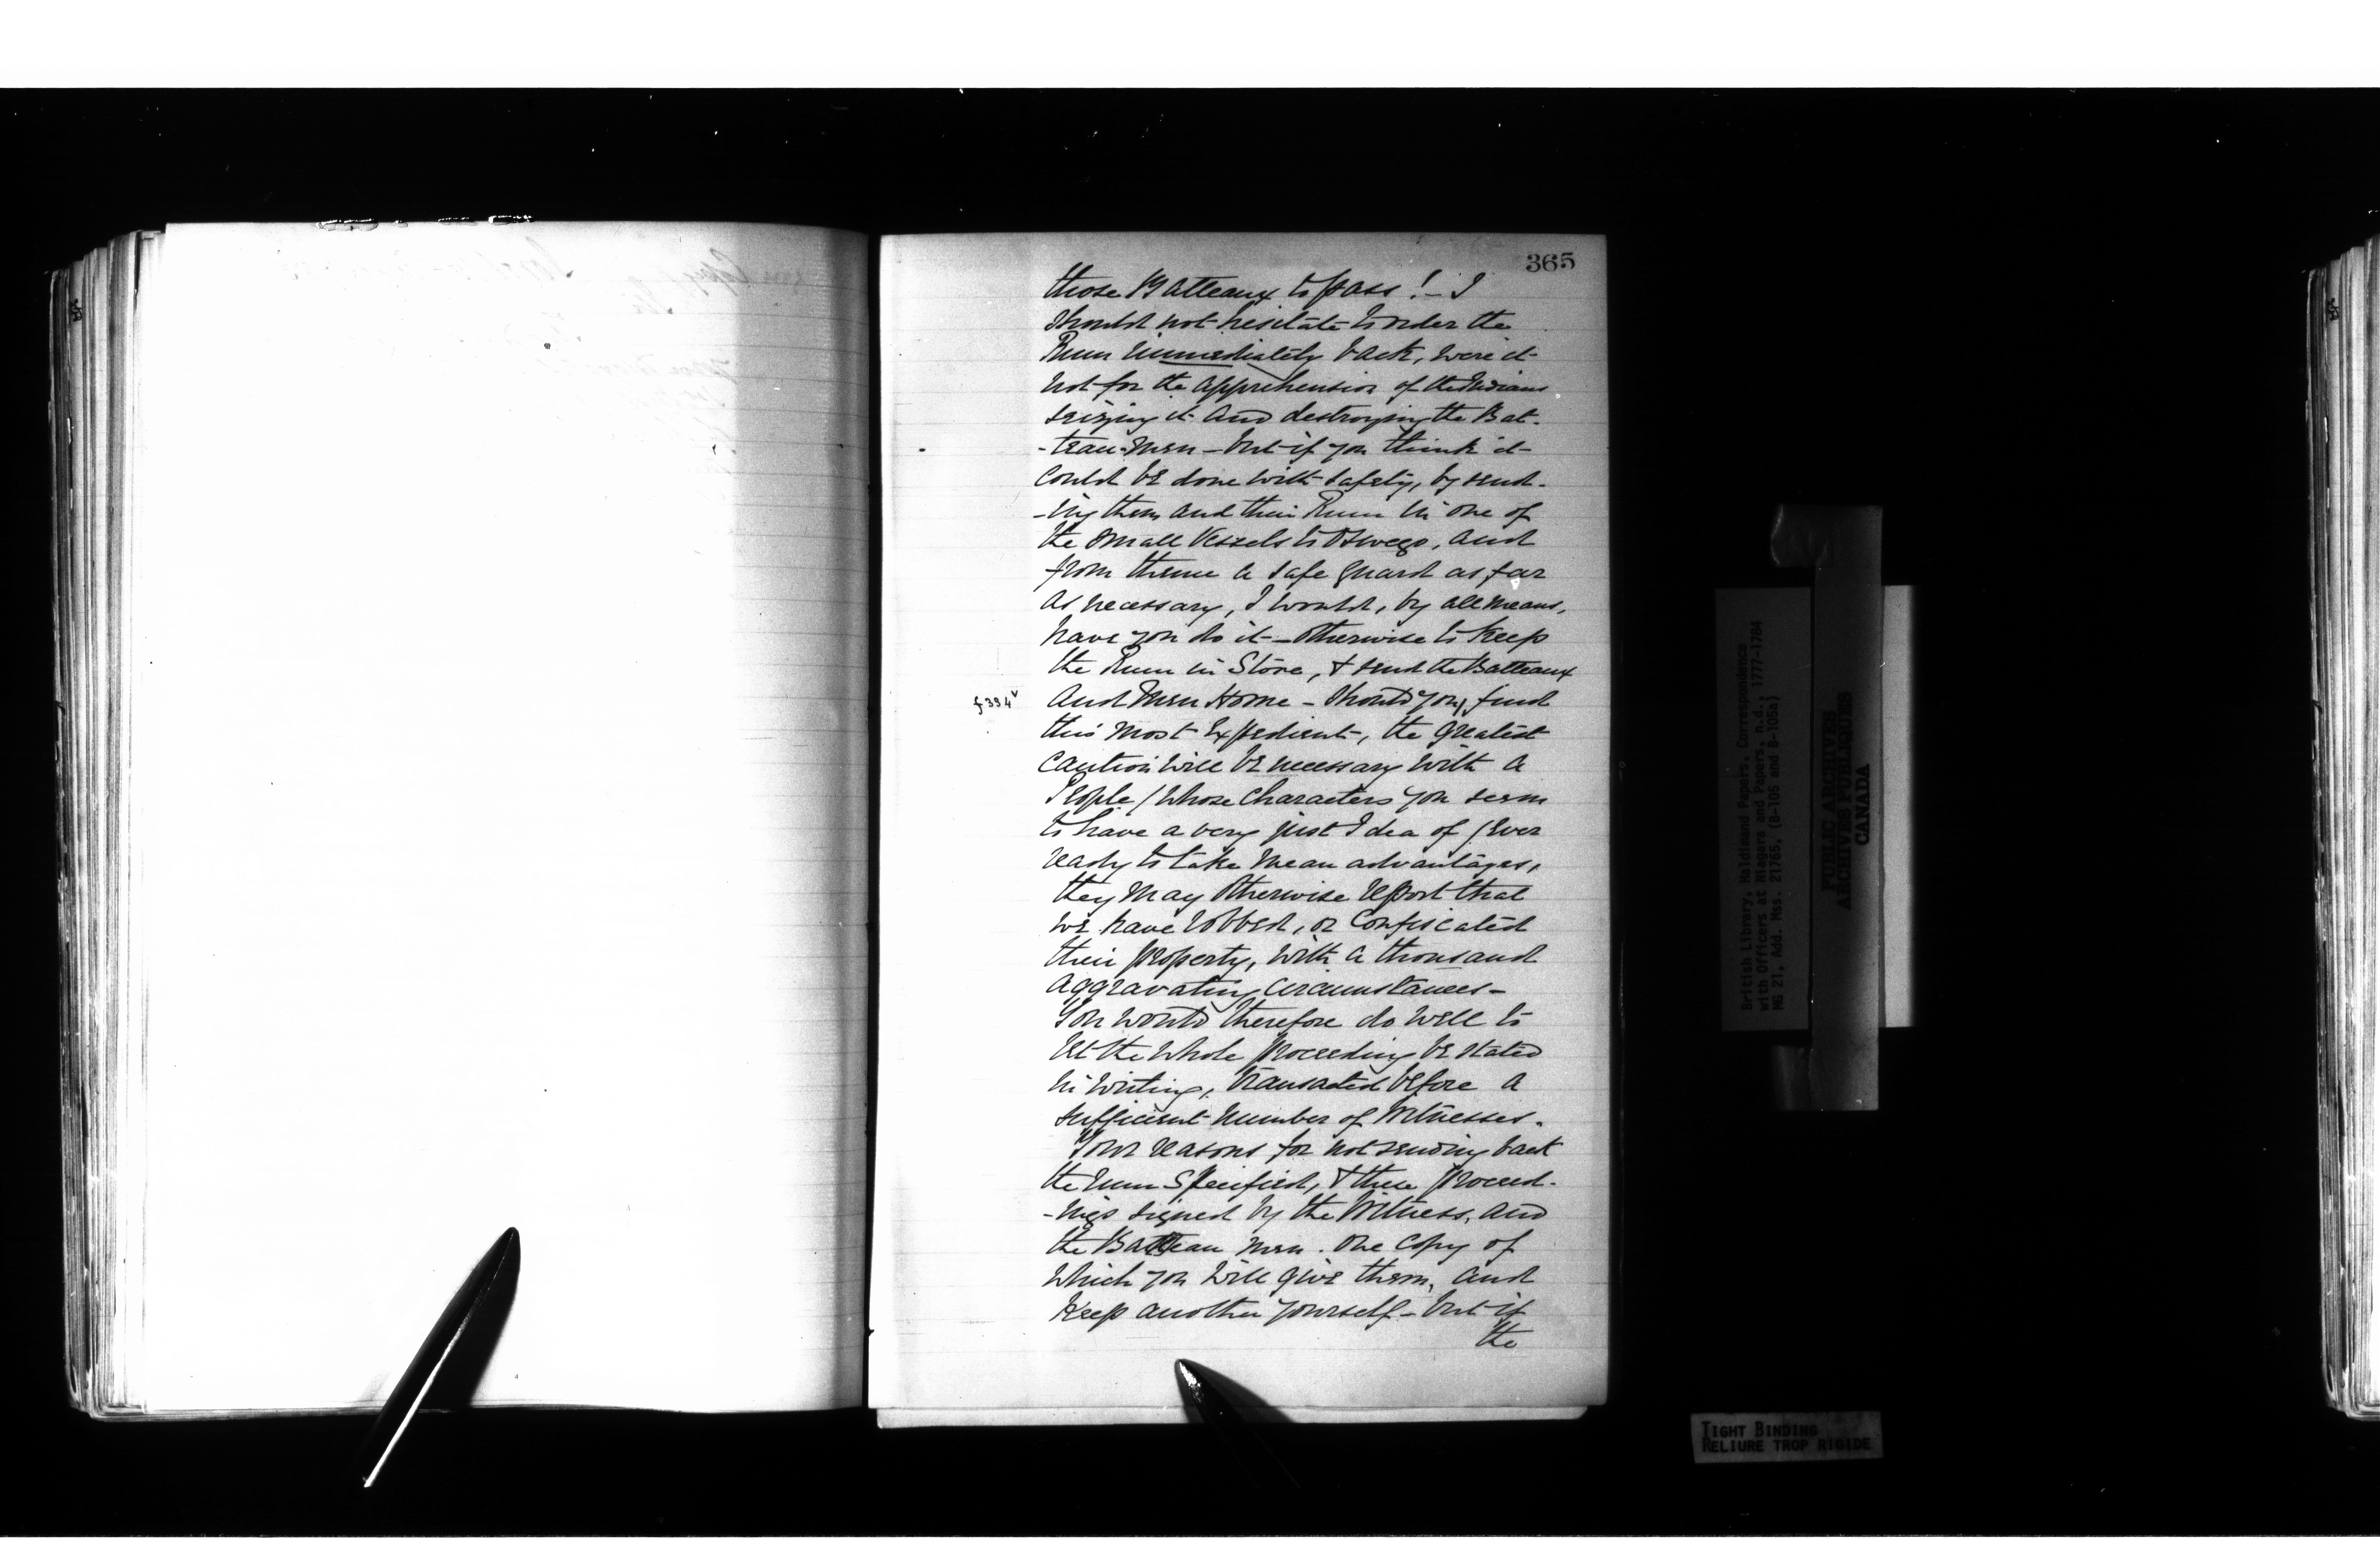 365
those Batteaux to pass! - I
should not hesitate to order the
Rum immediately back, were it
not for the apprehension of the Indians
seizing it and destroying the Bat-
-teau-men - but if you think it
could be done with safety, by send-
-ing them and their Rum in one of
the small Vessels to Oswego, and
from thence a safe guard as far
as necessary, I would, by all means,
have you do it - otherwise to keep
the Rum in Store, & send the Batteaux
f 334v
and men Home - should you, find
this most Expedient, the greatest
caution will be necessary with a
People / whose characters you seem
to have a very just Idea of / ever
ready to take mean advantages,
they may otherwise report that
we have robbed, or confiscated
their property, with a thousand
aggravating circumstances -
You would therefore do well to
let the whole proceeding be stated
in writing, transacted before a
sufficient number of Witnesses.
Your reasons for not sending back
the Rum Specified, & these proceed-
-ings signed by the Witness, and
the Batteau men. One copy of
which you will give them, and
keep another yourself - but if
the
British Library, Haldimand Papers, Correspondence
with Officers at Niagara and Papers, n.d., 1777-1784
MG 21, Add. Mss. 21765, (B-105 and B-105a)
PUBLIC ARCHIVES
ARCHIVES PUBLIQUES
CANADA
TIGHT BINDING
RELIURE TROP RIGIDE